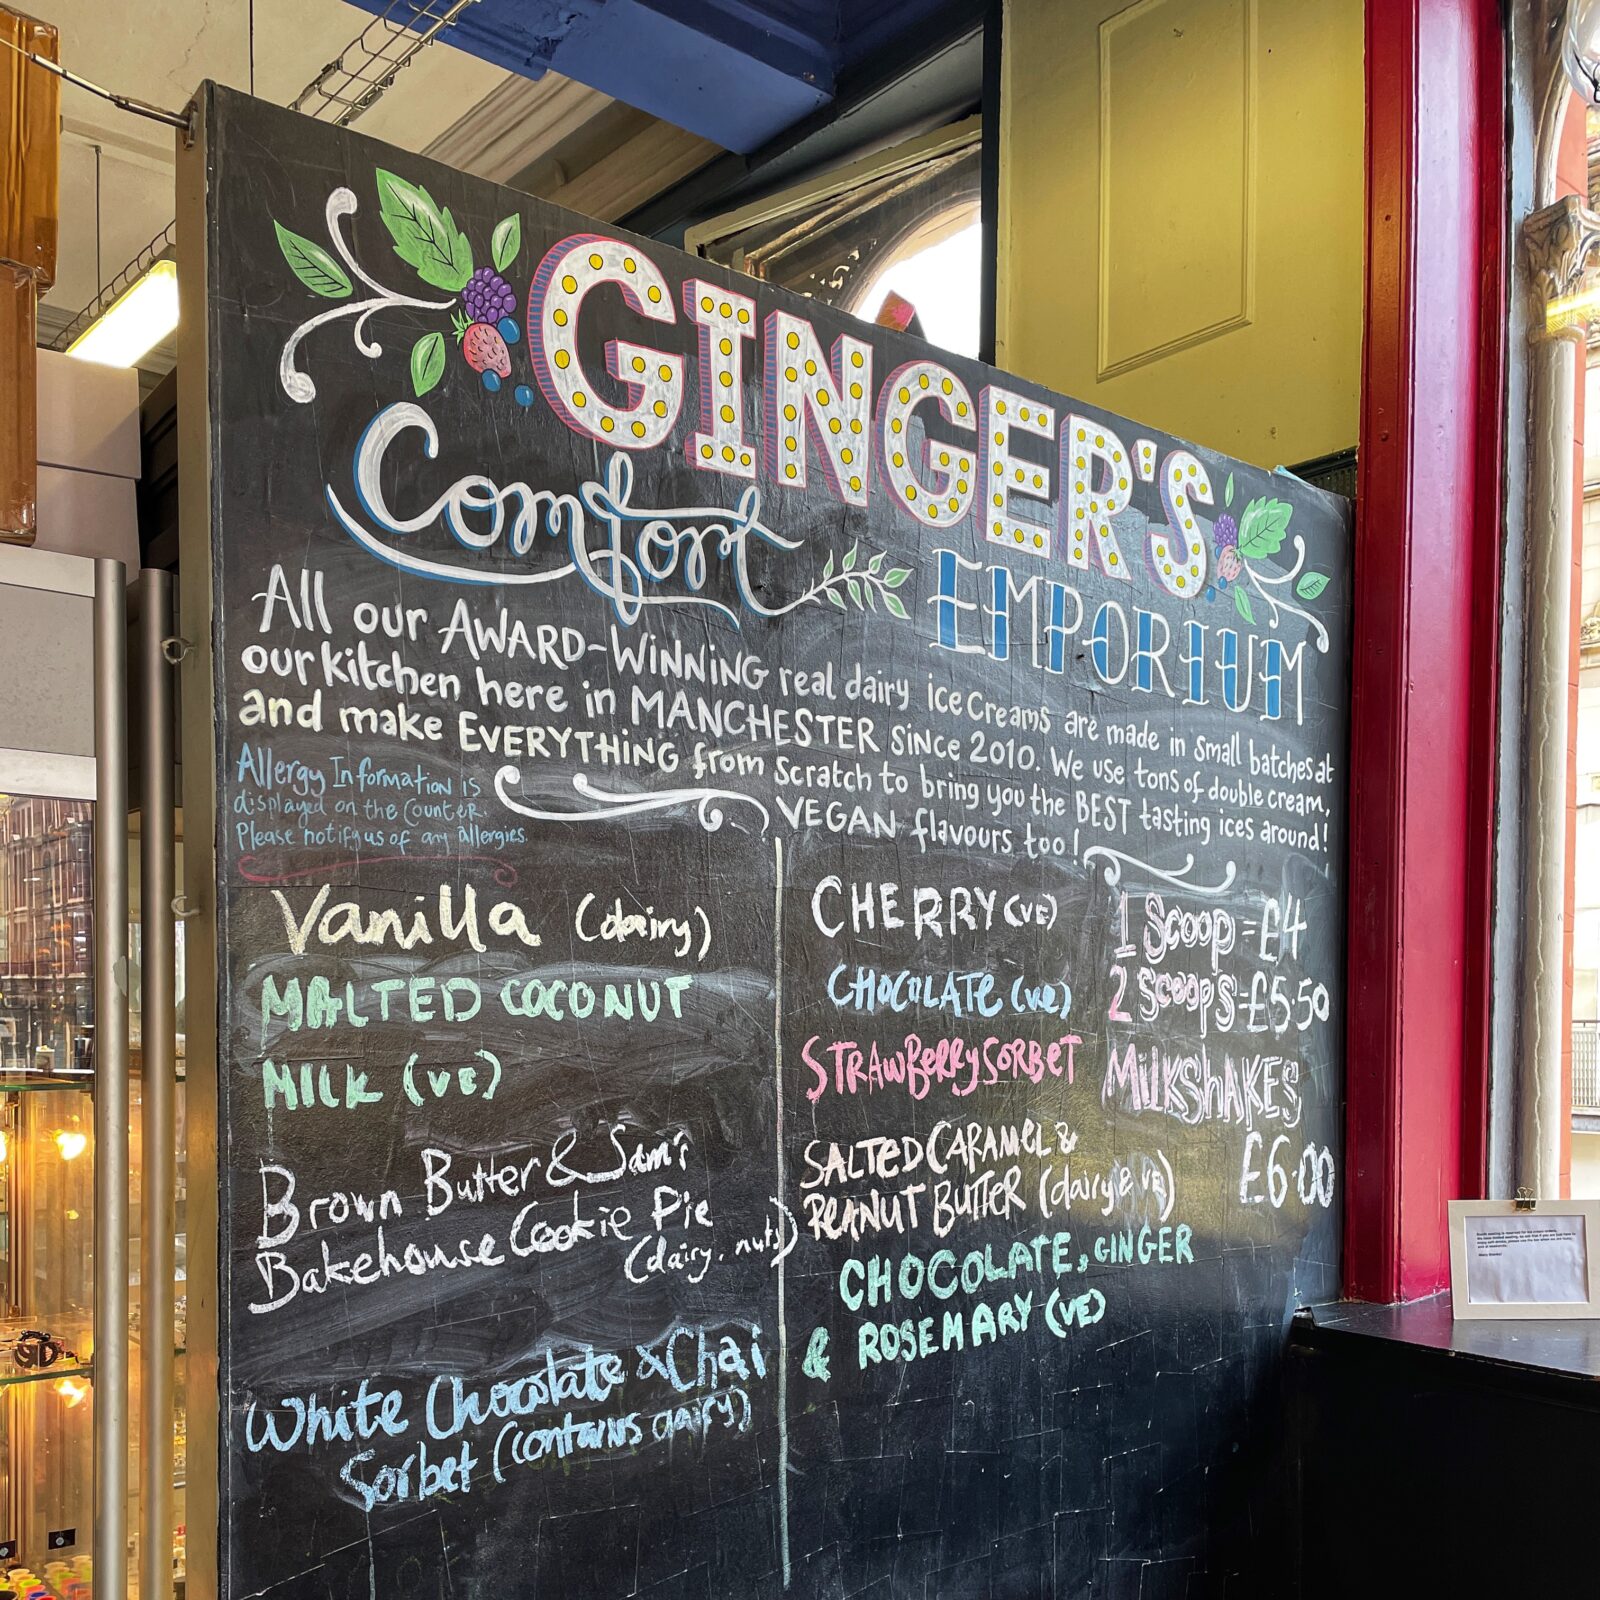 GINGER'S
Comfort
EMPORIUM
All our AWARD-WINNING real dairy ice Creams are made in small batches at
our kitchen here in MANCHESTER since 2010. We use tons of double cream,
and make EVERYTHING from scratch to bring you the BEST tasting ices around!
VEGAN flavours too!
Allergy Information is
displayed on the counter.
Please notify us of any allergies.
Vanilla (dairy)
MALTED COCONUT
MILK (VE)
Brown Butter & Sam's
Bakehouse Cookie Pie
(dairy, nuts)
White Chocolate & Chai
Sorbet (contains dairy)
CHERRY (VE)
CHOCOLATE (ve)
STRAWBERRY SORBET
SALTED CARAMEL &
PEANUT BUTTER (dairy & VE)
CHOCOLATE, GINGER
& ROSEMARY (VE)
1 Scoop = £4
2 Scoops = £5.50
MILKSHAKES
£6.00